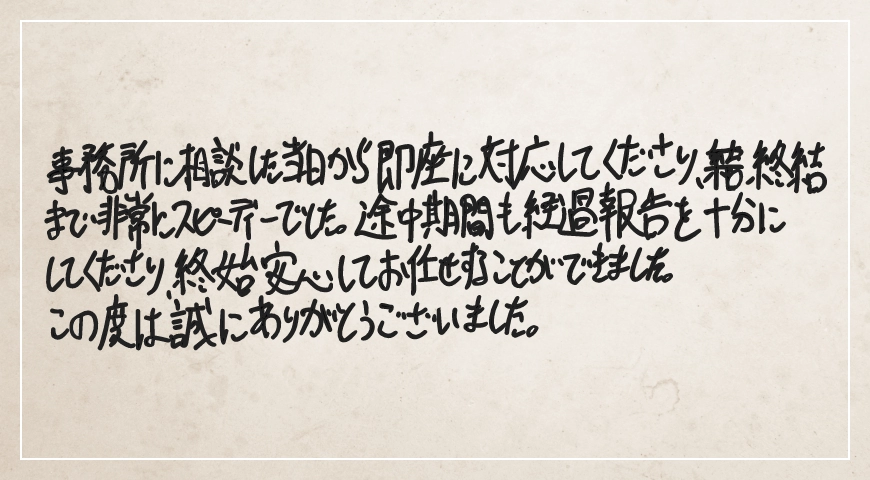 事務所に相談した当日から即座に対応してくださり、終結
まで非常にスピーディーでした。途中期間も経過報告を十分に
してくださり、終始安心してお任せすることができました。
この度は誠にありがとうございました。